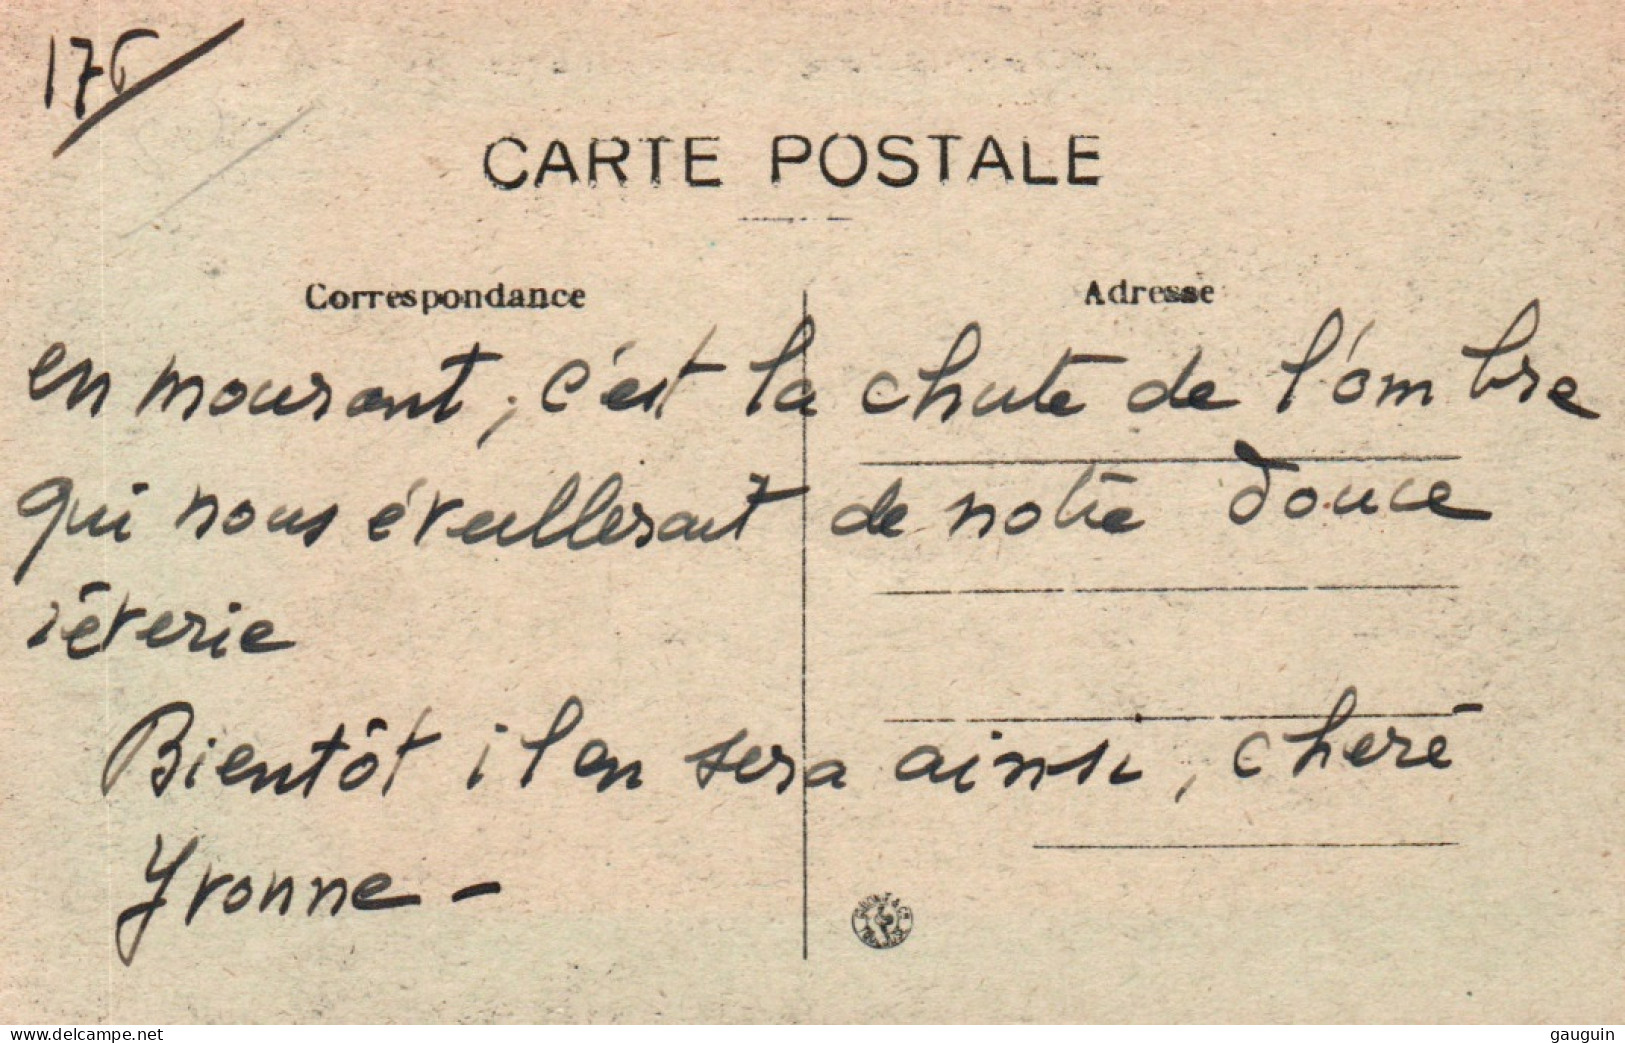 176
CARTE POSTALE
Correspondance
Adresse
en mourant, c'est la chute de l'ombre
qui nous éveillerait de notre douce
rêverie
Bientôt il en sera ainsi, cheré
Yvonne -
www.delcampe.net
gauguin